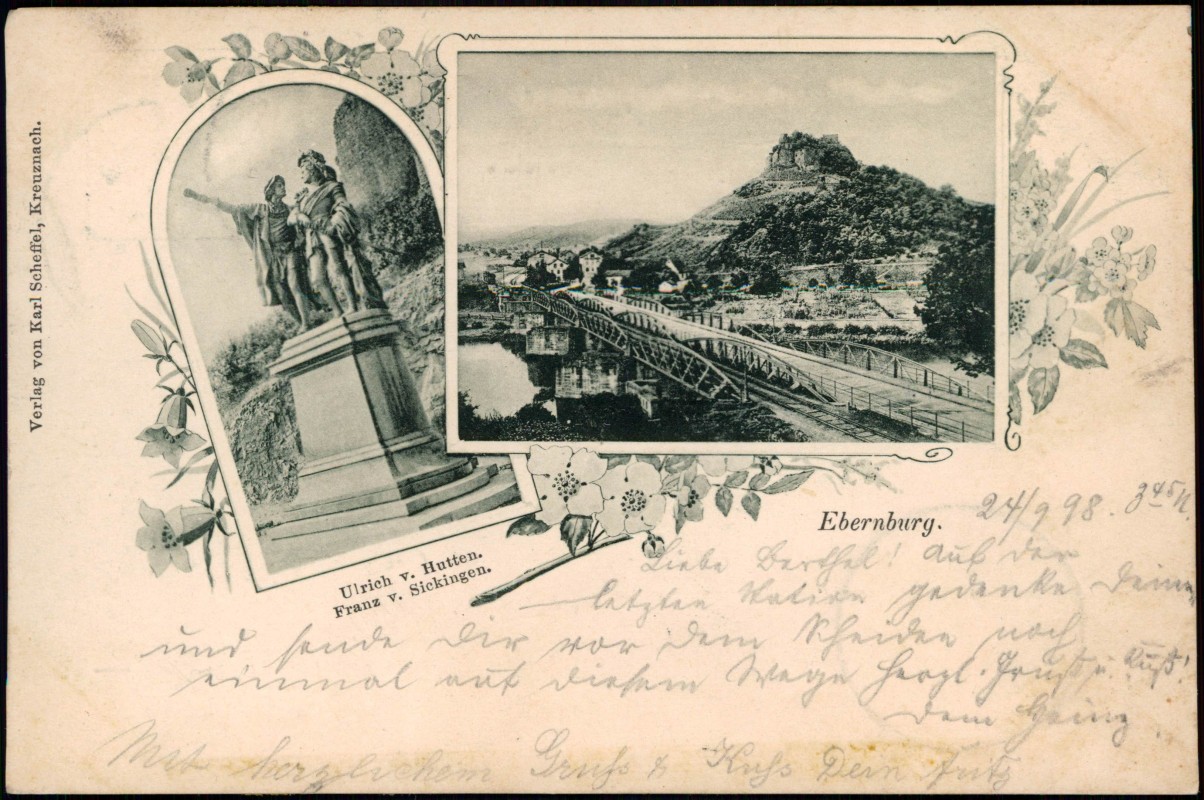 Verlag von Karl Scheffel, Kreuznach.
Ulrich v. Hutten.
Franz v. Sickingen.
Ebernburg.
24/9 98. 3 45 N.
Liebe Berthel! Auf der
letzten Station gedenke Deiner
und sende Dir vor dem Scheiden noch
einmal auf diesem Wege herzl. Gruß u. Kuß!
Dein Heinz
Mit herzlichem Gruß & Kuss Dein Fritz